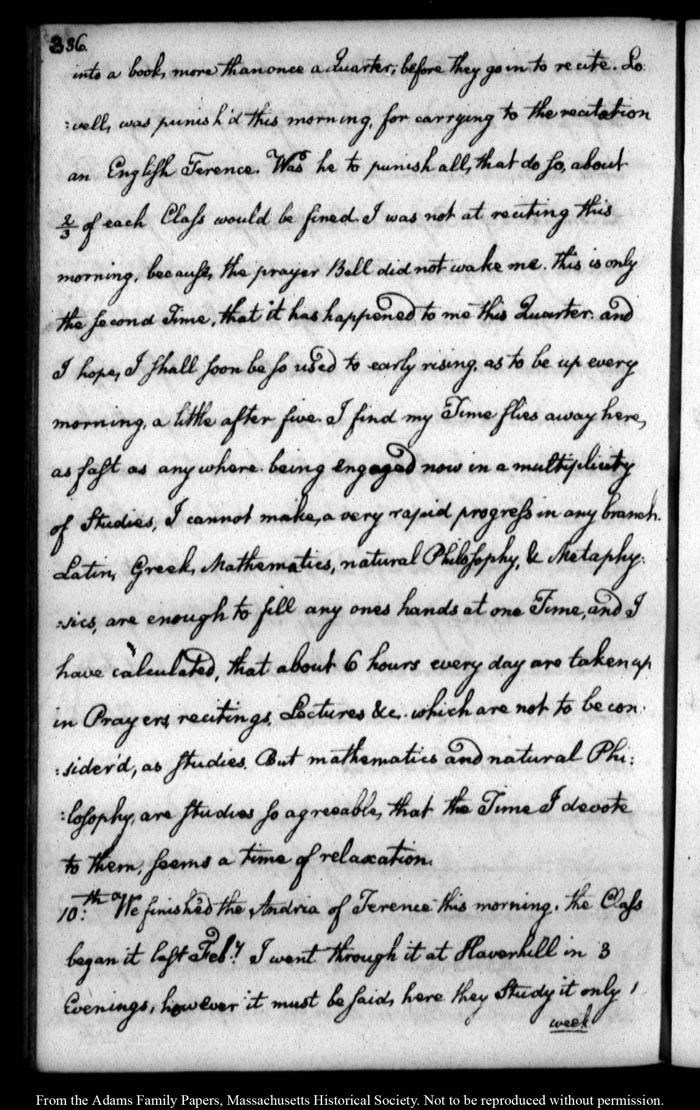 336.
into a book, more than once a Quarter, before they go in to recite. Lo:
:vell, was punish'd this morning, for carrying to the recitation
an English Terence. Was he to punish all, that do so, about
2/3 of each Class would be fined. I was not at reciting this
morning, because, the prayer Bell did not wake me. this is only
the second Time, that it has happened to me this Quarter. and
I hope, I shall soon be so used to early rising, as to be up every
morning, a little after five. I find my Time flies away here,
as fast as any where. being engaged now in a multiplicity
of Studies, I cannot make, a very rapid progress in any branch.
Latin, Greek, Mathematics, natural Philosophy, & Metaphy:
:sics, are enough to fill any ones hands at one Time, and I
have calculated, that about 6 hours every day are taken up
in Prayers, recitings, Lectures &c. which are not to be con:
:sider'd, as studies. But mathematics and natural Phi:
:losophy, are studies so agreeable, that the Time I devote
to them, seems a time of relaxation.
10:th We finished the Andria of Terence this morning. the Class
began it last Feby. I went through it at Haverhill in 3
Evenings, however it must be said, here they Study it only 1
week
From the Adams Family Papers, Massachusetts Historical Society. Not to be reproduced without permission.